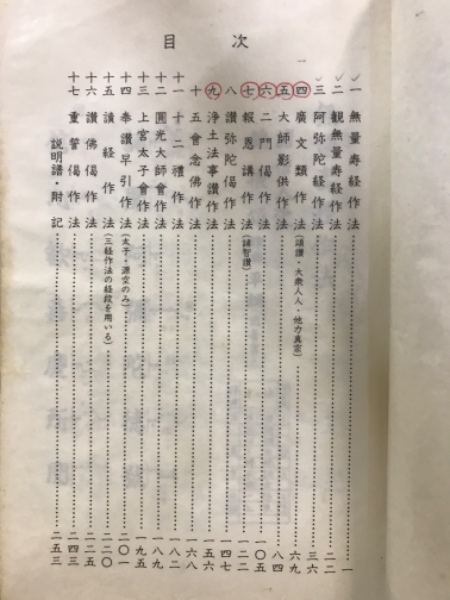 目次
一 無量寿経作法 一
二 観無量寿経作法 二二
三 阿弥陀経作法 三六
四 廣文類作法(頌讃・大衆人人・他力真宗) 六九
五 大師影供作法 八四
六 二門偈作法 一〇五
七 報恩講作法(誦智讃) 一二二
八 讃弥陀偈作法 一四七
九 浄土法事讃作法 一五六
十 五會念佛作法 一六八
十一 十二禮作法 一八二
十二 圓光大師會作法 一八九
十三 上宮太子會作法 一九五
十四 奉讃早引作法(太子・源空のみ) 二〇一
十五 讀経作法(三経作法の経段を用いる) 二二〇
十六 讃佛偈作法 二二五
十七 重誓偈作法 二四三
説明譜・附記 二五三